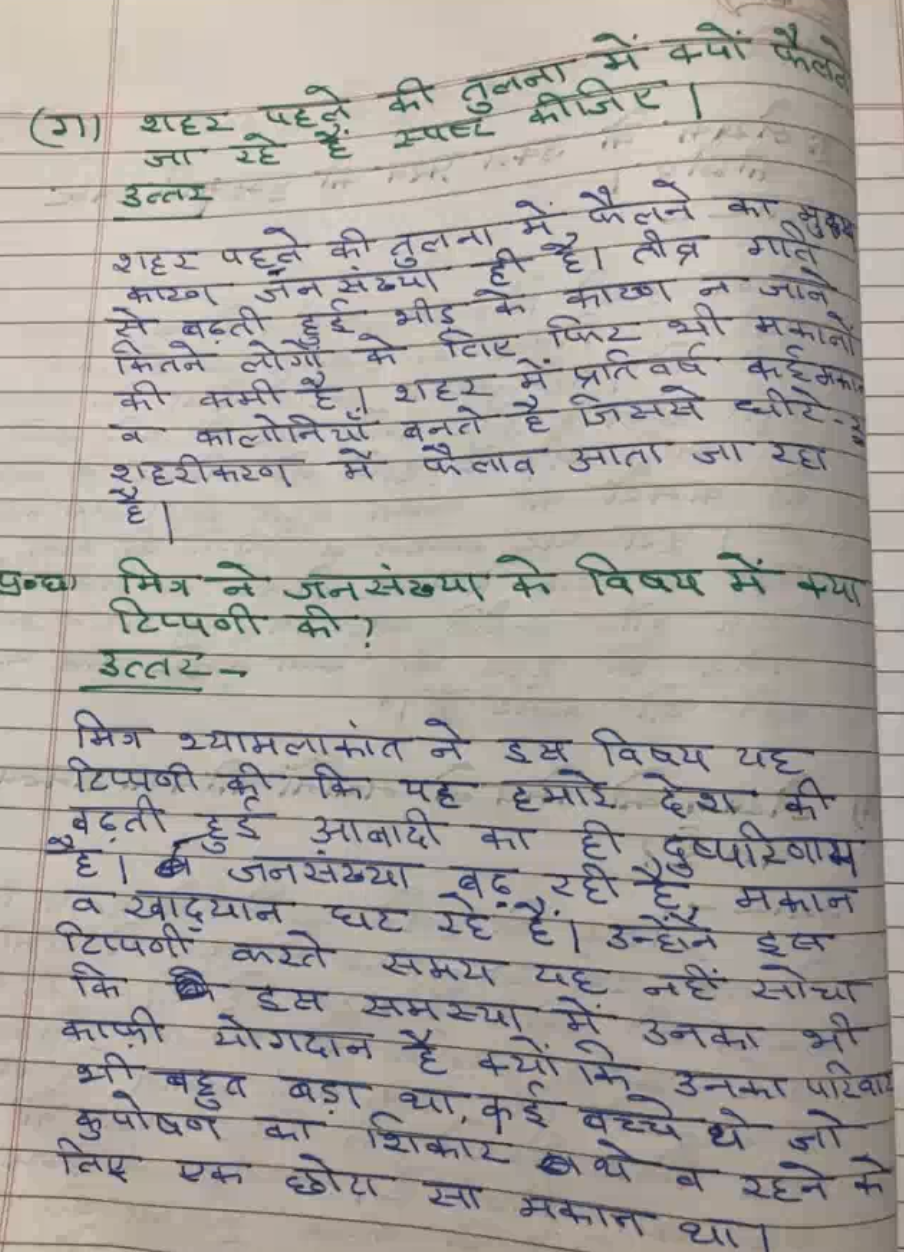 (ग) शहर पहले की तुलना में क्यों फैलते
जा रहे हैं स्पष्ट कीजिए।
उत्तर
शहर पहले की तुलना में फैलने का मुख्य
कारण जनसंख्या ही है। तीव्र गति
से बढ़ती हुई भीड़ के कारण न जाने
कितने लोगों के लिए फिर भी मकानों
की कमी है। शहर में प्रतिवर्ष कई मकान
व कालोनियाँ बनते है जिससे धीरे-२
शहरीकरण में फैलाव आता जा रहा
है।
प्र०घ) मित्र ने जनसंख्या के विषय में क्या
टिप्पणी की?
उत्तर -
मित्र श्यामलाकांत ने इस विषय यह
टिप्पणी की कि यह हमारे देश की
बढ़ती हुई आबादी का ही दुष्परिणाम
है। जनसंख्या बढ़ रही है, मकान
व खाद्यान घट रहे हैं। उन्होंने इस
टिप्पणी करते समय यह नहीं सोचा
कि इस समस्या में उनका भी
काफ़ी योगदान है क्योंकि उनका परिवार
भी बहुत बड़ा था, कई बच्चे थे जो
कुपोषण का शिकार थे व रहने के
लिए एक छोटा सा मकान था।